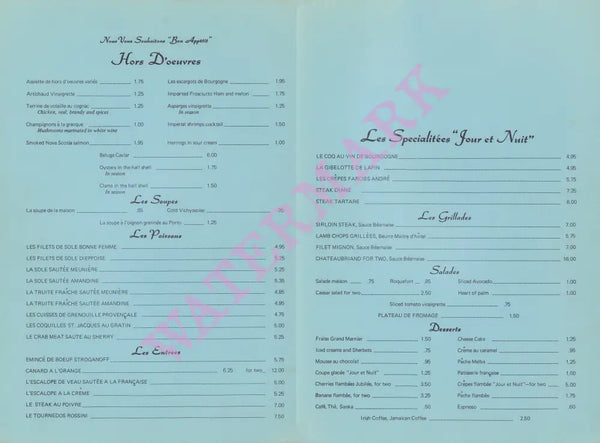 Nous Vous Souhaitons "Bon Appétit"
Hors D'oeuvres
Assiette de hors d'oeuvres variés 1.75
Les escargots de Bourgogne 1.95
Artichaud Vinaigrette 1.25
Imported Prosciutto Ham and melon 1.75
Terrine de volaille au cognac 1.25
Chicken, veal, brandy and spices
Asperges vinaigrette 1.25
In season
Champignons à la grecque 1.00
Mushrooms marinated in white wine
Imperial shrimps cocktail 1.50
Smoked Nova Scotia salmon 1.95
Herrings in sour cream 1.00
Beluga Caviar 6.00
Oysters in the half shell 1.75
In season
Clams in the half shell 1.50
In season
Les Soupes
La soupe de la maison .65
Cold Vichyssoise
La soupe à l'oignon gratinée au Porto 1.25
Les Poissons
LES FILETS DE SOLE BONNE FEMME 4.95
LES FILETS DE SOLE DIEPPOISE 5.25
LA SOLE SAUTÉE MEUNIÈRE 5.25
LA SOLE SAUTÉE AMANDINE 5.35
LA TRUITE FRAÎCHE SAUTÉE MEUNIÈRE 4.85
LA TRUITE FRAÎCHE SAUTÉE AMANDINE 4.95
LES CUISSES DE GRENOUILLE PROVENÇALE 4.75
LES COQUILLES ST. JACQUES AU GRATIN 5.00
LE CRAB MEAT SAUTE AU SHERRY 6.25
Les Entrées
EMINCÉ DE BOEUF STROGANOFF 5.75
CANARD A L'ORANGE 6.25 for two 12.00
L'ESCALOPE DE VEAU SAUTÉE A LA FRANÇAISE 5.00
L'ESCALOPE A LA CRÈME 5.25
LE STEAK AU POIVRE 7.00
LE TOURNEDOS ROSSINI 7.50
Les Specialitées "Jour et Nuit"
LE COQ AU VIN DE BOURGOGNE 4.95
LA GIBELOTTE DE LAPIN 4.95
LES CRÊPES FARCIES ANDRÉ 5.75
STEAK DIANE 7.25
STEAK TARTARE 6.00
Les Grillades
SIRLOIN STEAK, Sauce Béarnaise 7.00
LAMB CHOPS GRILLÉES, Beurre Maître d'hôtel 5.75
FILET MIGNON, Sauce Béarnaise 7.00
CHATEAUBRIAND FOR TWO, Sauce Béarnaise 16.00
Salades
Salade maison .75
Roquefort .85
Sliced Avocado 1.00
Caesar salad for two 2.50
Heart of palm 1.00
Sliced tomato vinaigrette .75
PLATEAU DE FROMAGE 1.50
Desserts
Fraise Grand Marnier 1.50
Cheese Cake 1.25
Iced creams and Sherbets .75
Crème au caramel .95
Mousse au chocolat 1.35
Pêche Melba 1.25
Coupe glacée "Jour et Nuit" 1.25
Pâtisserie française 1.00
Cherries flambées Jubilée, for two 3.50
Crêpes flambée "Jour et Nuit"-for two 5.00
Banane flambée, for two 3.25
Pêche flambée 1.75
Café, Thé, Sanka .50
Espresso .60
Irish Coffee, Jamaican Coffee 2.50
WATERMARK